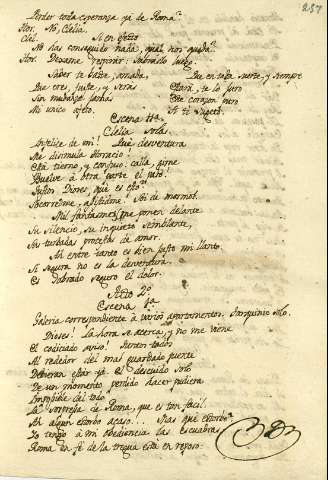 257
Perder toda esperanza ya de Roma?
Hor. No, Clelia.
Clel. Si en efecto
No has conseguido nada, qual nos queda?
Hor. Dexame respirar: Sabraslo luego.
Saber te baste, amada,
Que eres, fuiste, y serás
Sin mudanza jamás
Mi único objeto.
Que en toda suerte, y siempre
Clara, te lo juro
Este corazon puro
A ti sugeto.
Escena 11ª
Clelia sola.
Infelice de mi! Qué desventura
Me disimula Horacio!
Está tierno, y confuso: calla, gime
Vuelve á otra parte el paso!
Justos Dioses, qué es esto?
Socorredme, asistidme! Soi de marmol.
Mil fantasmas me ponen delante
Su silencio, su inquieto semblante,
Sus turbadas protestas de amor.
Ah! entre tanto es bien justo mi llanto,
Si segura no es la desventura,
Es sobrado seguro el dolor.
Acto 2º
Escena 1ª
Galeria correspondiente à varios apartamentos. Tarquinio solo.
Dioses! La hora se acerca, y no me viene
El codiciado aviso! Frente todos
Al rededor del mas guardado puente
Debieran estár ya. El descuido solo
De un momento perdido hacer pudiera
Imposible del todo
La sorpresa de Roma, que es tan facil.
Ah algun estorbo acaso... Mas qué estorbo?
Yo tengo à mi obediencia las Escuadras
Roma en fé de la tregua está en reposo: